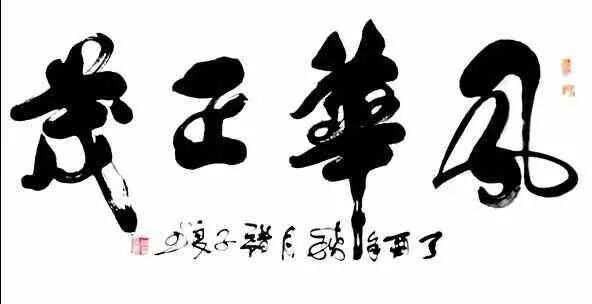 风華正茂
丁酉年秋月